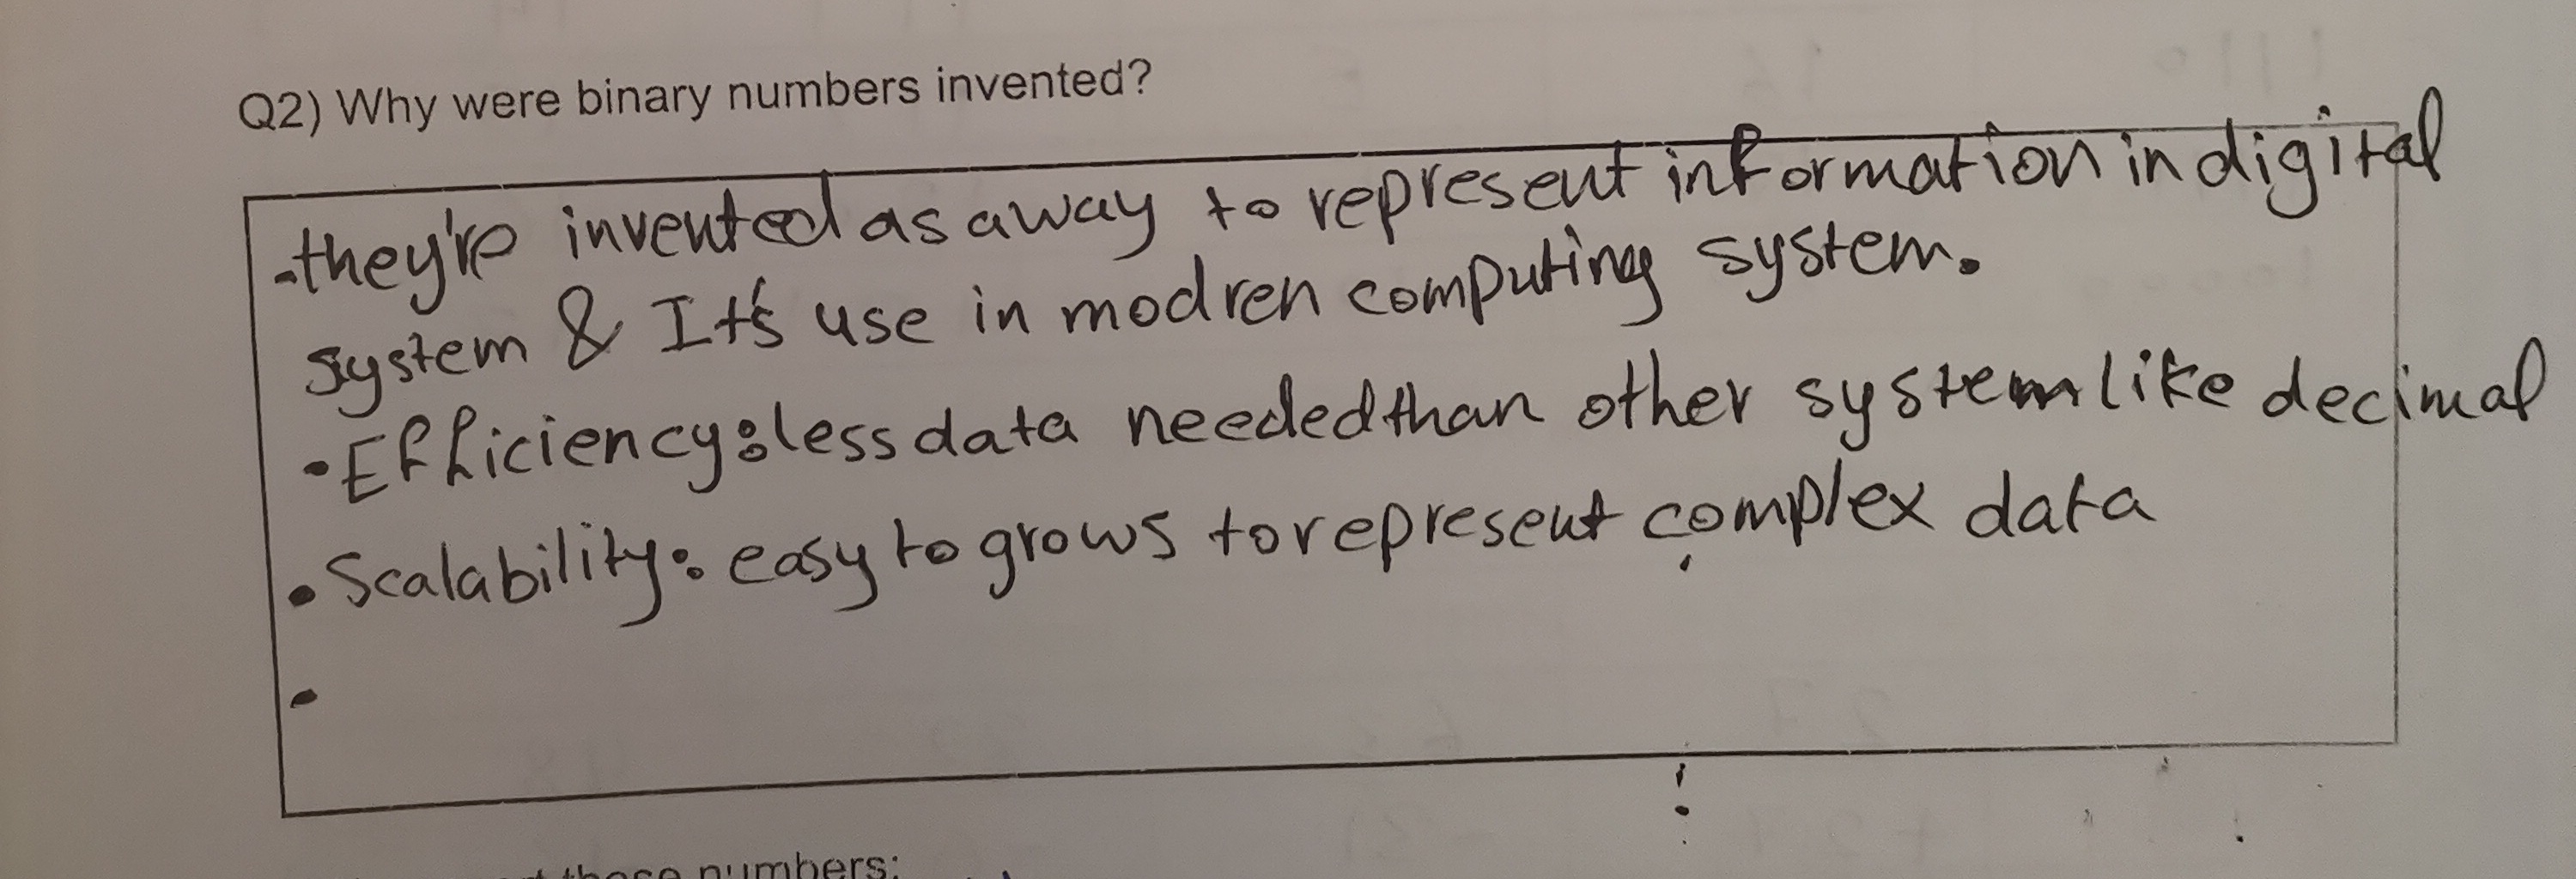 Q2) Why were binary numbers invented?
-they're invented as a way to represent information in digital
system & It's use in modren computing system.
•Efficiency: less data needed than other system like decimal
•Scalability: easy to grows to represent complex data
•
these numbers: